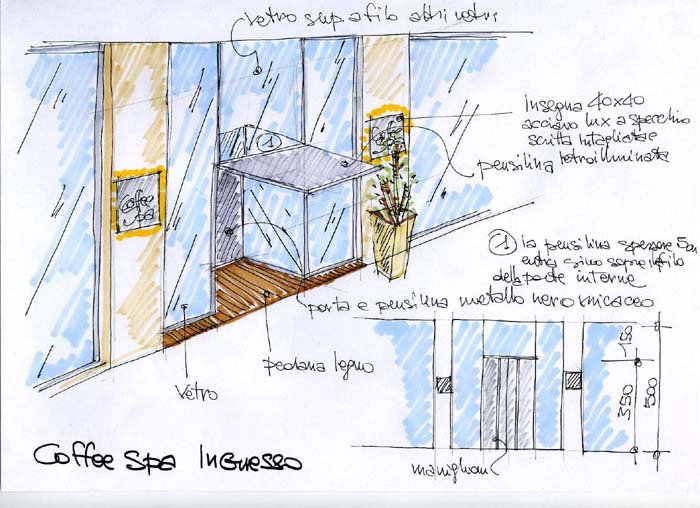 vetro supra filo altri vetri
Insegna 40x40
acciaio lux a specchio
scritta intagliata e
pensilina retroilluminata
1
Coffee
Spa
Coffee
Spa
1 la pensilina spessore 5cm
entra sino sopra
della parete interne
porta e pensilina metallo nero micaceo
pedana legno
vetro
150
350
500
maniglioni
Coffee Spa Ingresso